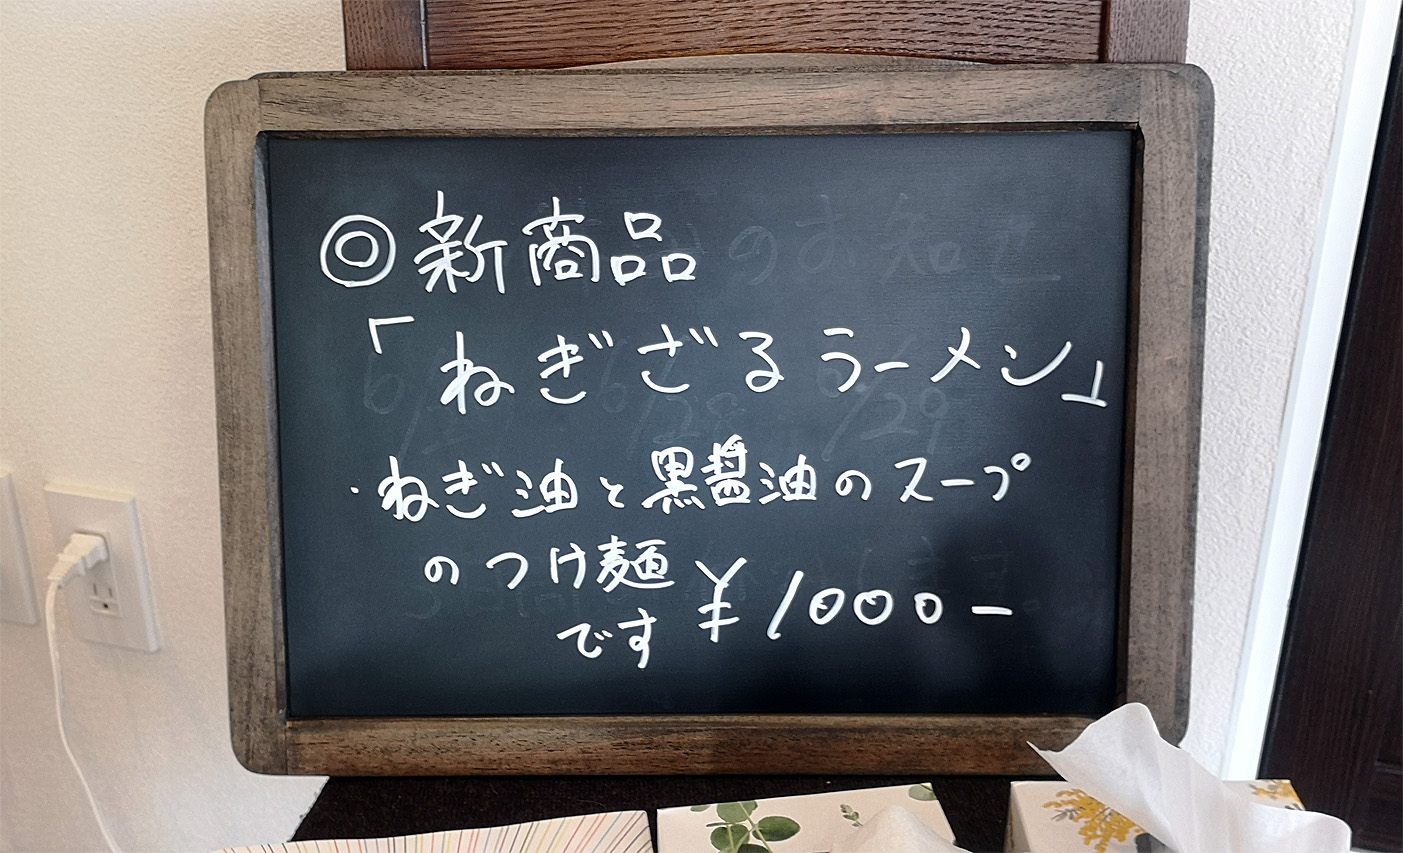 ◎新商品
「ねぎざるラーメン」
・ねぎ油と黒醤油のスープ
のつけ麺
です ¥1000-